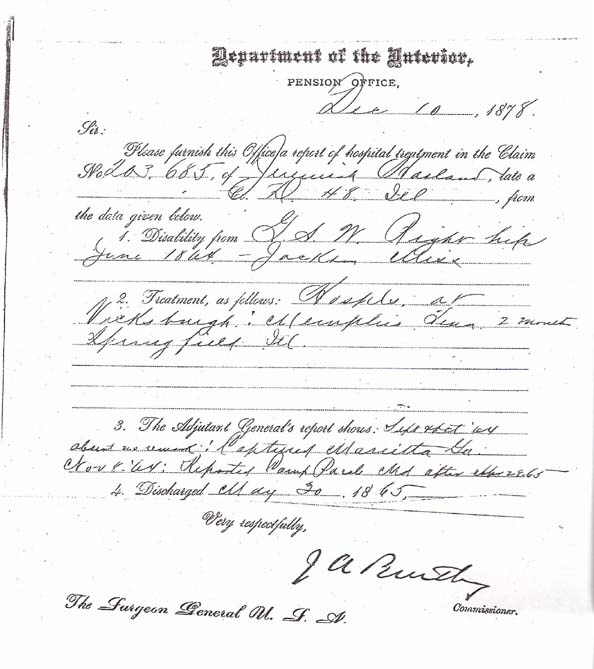 Department of the Interior,
PENSION OFFICE,
Dec 10, 1878.
Sir:
Please furnish this Office a report of hospital treatment in the Claim
No 203.685, of Jeremiah, late a
Co. D. 48 Ill, from
the data given below.
1. Disability from G. S. W. Right hip
June 1864 - Jackson Miss
2. Treatment, as follows: Hospls. at
Vicksburgh: Memphis Tenn 2 months
Springfield Ill.
3. The Adjutant General's report shows: Sept & Oct '64
absent no remark: Captured Marietta Ga.
Nov 8 '64: Reported Camp Parole Md after 65
4. Discharged May 30, 1865.
Very respectfully,
J A Bentley
Commissioner.
The Surgeon General U. S. A.